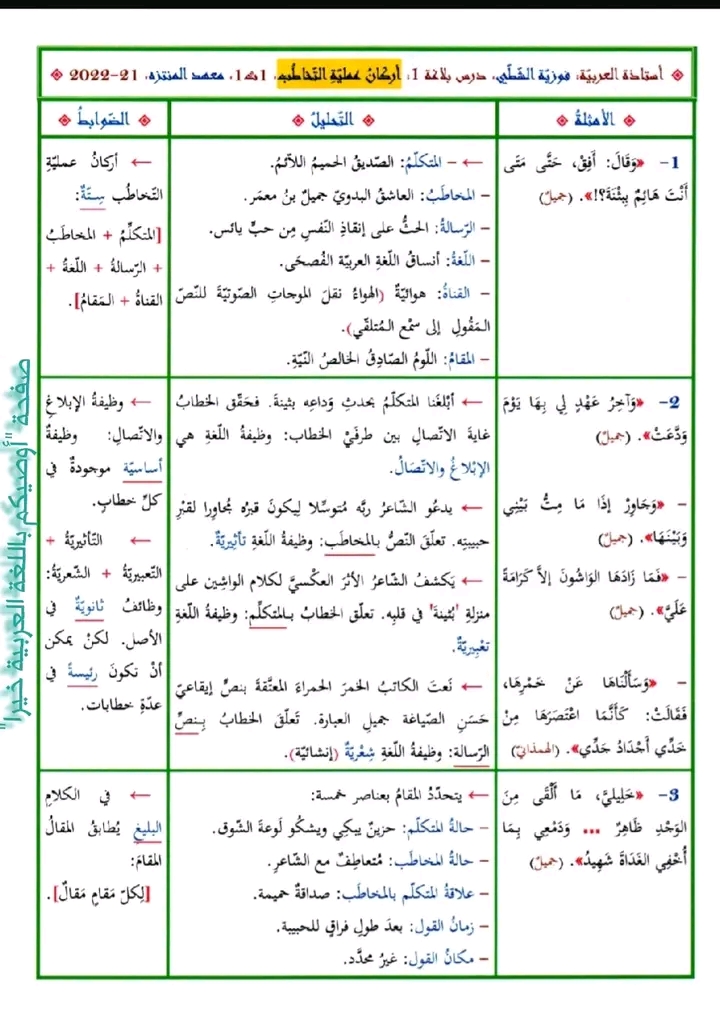 أستاذة العربيّة: فوزيّة الشّطّي، درس بلاغة 1: أركانُ عمليّةِ التّخاطُبِ، 1ث1، معهد المنتزه، 21-2022
الأمثلةُ
التّحليلُ
الضّوابطُ
1- «وَقَالَ: أَفِقْ، حَتَّى مَتَى
أَنْتَ هَائِمٌ بِبَثْنَةَ؟!». (جميلٌ)
← - المتكلّمُ: الصّديقُ الحميمُ اللاّئمُ.
- المخاطَبُ: العاشقُ البدويّ جميلُ بنُ معمَر.
- الرّسالةُ: الحثُّ على إنقاذِ النّفسِ مِن حبٍّ يائس.
- اللّغةُ: أنساقُ اللّغةِ العربيّة الفُصحَى.
- القناةُ: هوائيّةٌ (الهواءُ نقلَ الموجاتِ الصّوتيّةَ للنّصّ
المَقُولِ إلى سَمْعِ المُتلقّي).
- المقامُ: اللّومُ الصّادِقُ الخالصُ النّيّةِ.
← أركانُ عمليّةِ
التّخاطُب سِتّةٌ:
[المتكلِّمُ + المخاطَبُ
+ الرّسالةُ + اللّغةُ +
القناةُ + المَقامُ].
2- «وَآخِرُ عَهْدٍ لِي بِهَا يَوْمَ
وَدَّعَتْ». (جميلٌ)
- «وَجَاوِرْ إِذَا مَا مِتُّ بَيْنِي
وَبَيْنَهَا». (جميلٌ)
- «فَمَا زَادَهَا الوَاشُونَ إلاَّ كَرَامَةً
عَلَيَّ». (جميلٌ)
- «وَسَأَلْنَاهَا عَنْ خَمْرِهَا،
فَقَالَتْ: كَأَنَّمَا اعْتَصَرَهَا مِنْ
خَدِّي أَجْدَادُ جَدِّي». (الهمذانيّ)
← أبْلغَنا المتكلّمُ بحدثِ وَداعِه بثينةَ. فحَقّق الخطابُ
غايةَ الاتّصالِ بين طرفَيْ الخطاب: وظيفةُ اللّغةِ هي
الإبْلاغُ والاتّصَالُ.
← يدعُو الشّاعرُ ربَّه مُتوسِّلا لِيكونَ قبرُه مُجاوِرا لقبْرِ
حبيبتِه. تعلّق النّصُّ بالمخاطَبِ: وظيفةُ اللّغةِ تأثيريّةٌ.
← يَكشفُ الشّاعرُ الأثرَ العكْسيَّ لكلام الواشِين على
منزلةِ "بُثينةَ" في قلبِه. تعلّق الخطابُ بـالمتكلِّمِ: وظيفةُ اللّغةِ
تعْبِيريّةٌ.
← نَعتَ الكاتبُ الخمرَ الحمراءَ المعتَّقةَ بنصٍّ إيقاعيٍّ
حَسَنِ الصّياغة جميلِ العبارة. تَعلّقَ الخطابُ بِـنصِّ
الرّسالةِ: وظيفةُ اللّغةِ شِعْريّةٌ (إنشائيّة).
← وظيفةُ الإبلاغِ
والاتّصالِ: وظيفةٌ
أساسيّة موجودةٌ في
كلّ خطابٍ.
← التّأثيريّةُ +
التّعبيريّةُ + الشّعريّةُ:
وظائفُ ثانويّةٌ في
الأصل. لكنْ يمكن
أنْ تكونَ رئيسةً في
عدّةِ خطابات.
3- «خَلِيلَيَّ، مَا أَلْقَى مِنَ
الوَجْدِ ظَاهِرٌ ... وَدَمْعِي بِمَا
أُخْفِي الغَدَاةَ شَهِيدُ». (جميلٌ)
← يتحدّدُ المقامُ بعناصر خمسة:
- حالةُ المتكلّم: حزينٌ يبكِي ويشكُو لَوعةَ الشّوق.
- حالةُ المخاطَب: مُتعاطِفٌ مع الشّاعرِ.
- علاقةُ المتكلّم بالمخاطَب: صداقةٌ حميمة.
- زمانُ القول: بعدَ طولِ فراقٍ للحبيبة.
- مكانُ القول: غيرُ محدَّد.
← في الكلامِ
البليغِ يُطابقُ المقالُ
المقامَ:
[لِكلّ مَقامٍ مَقالٌ].
صفحة "أوصيكم باللغة العربية خيرا"